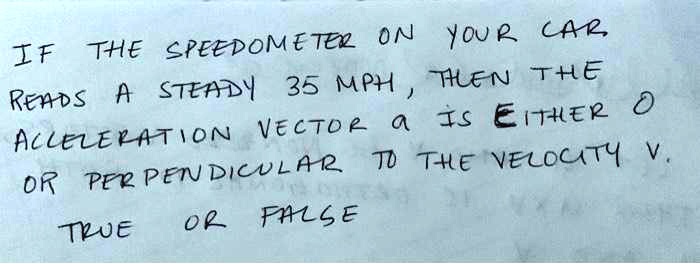 IF THE SPEEDOMETER ON YOUR CAR
READS A STEADY 35 MPH, THEN THE
ACCELERATION VECTOR a IS EITHER 0
OR PERPENDICULAR TO THE VELOCITY V.
TRUE OR FALSE